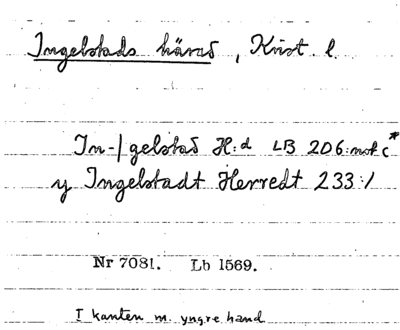 Ingelstads härad, Krist. l.
In-|gelstad H:d LB 206: not c*
y Ingelstadt Herredt 233:1
Nr 7081. Lb 1569.
I kanten m. yngre hand